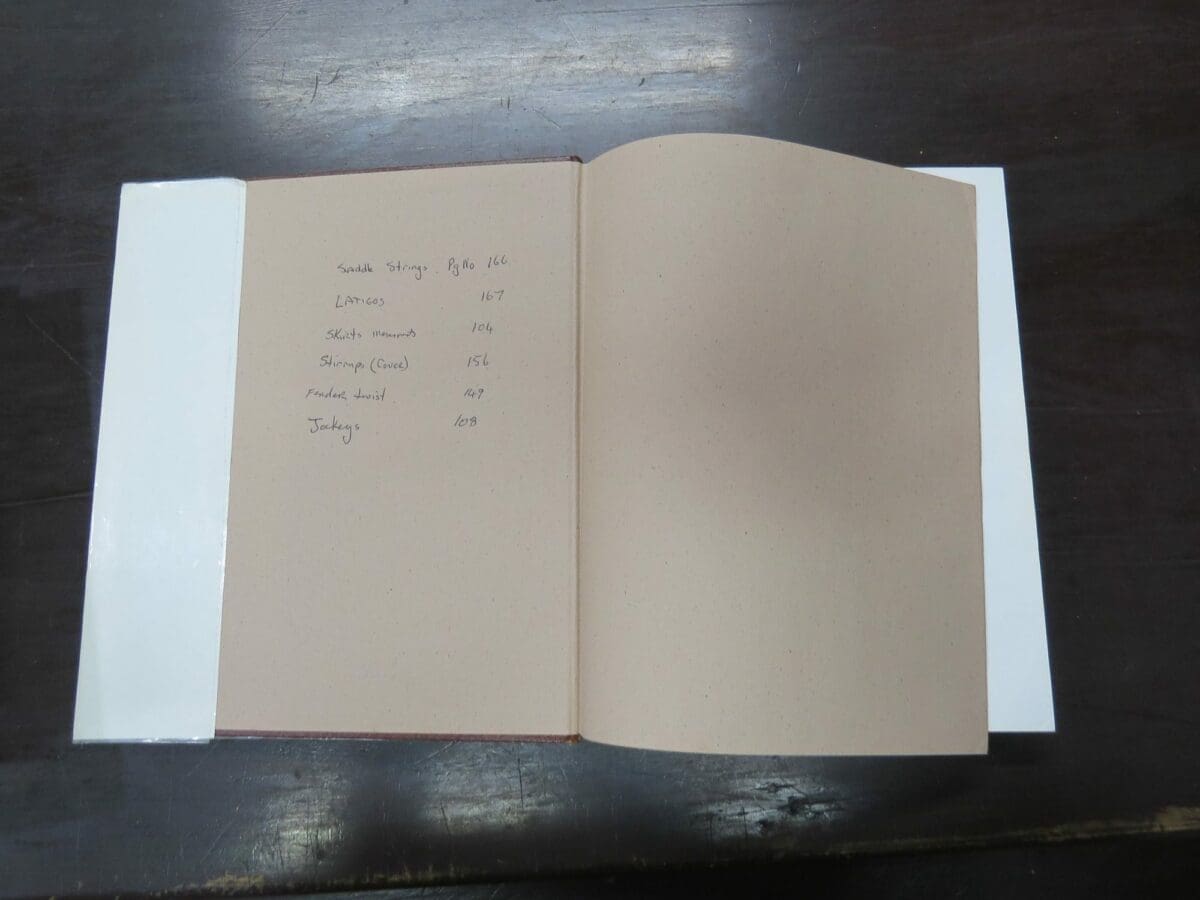 Saddle Strings Pg No 166
LATIGOS 167
Skirts 104
Stirrups (Cover) 156
Fender twist 149
Jockeys 108